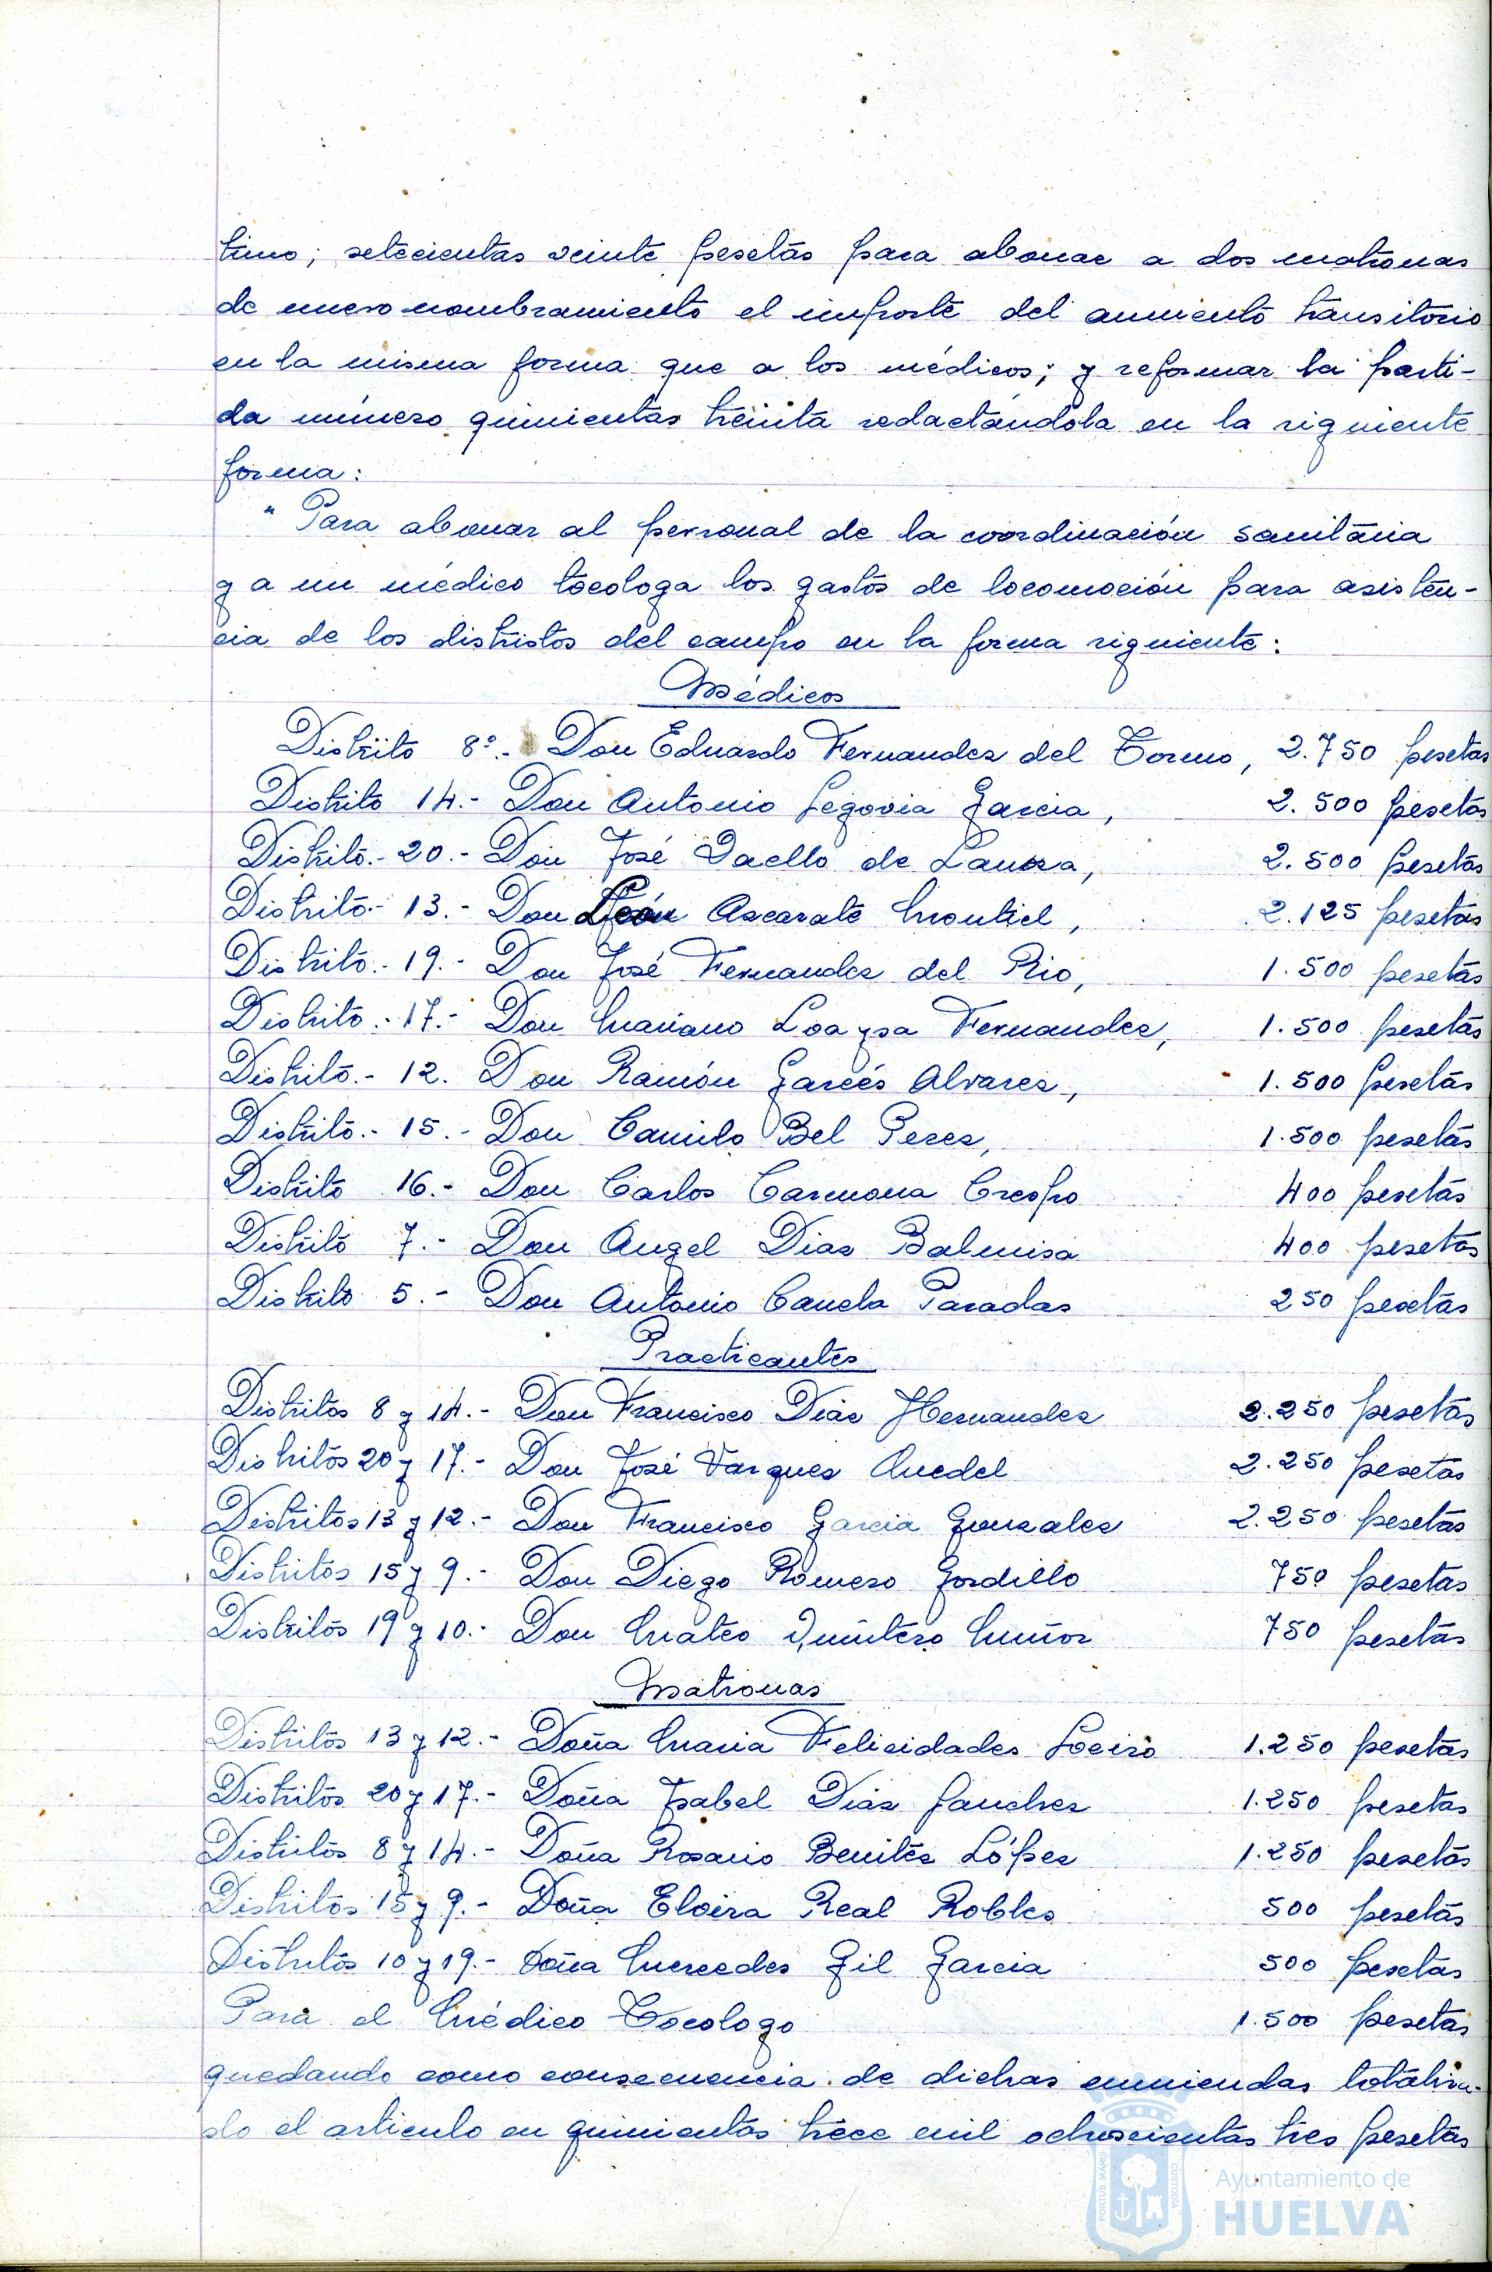 timo; setecientas veinte pesetas para abonar a dos matronas
de nuevo nombramiento el importe del aumento transitorio
en la misma forma que a los médicos; y reformar la parti-
da número quinientas treinta redactándola en la siguiente
forma:
" Para abonar al personal de la coordinación sanitaria
y a un médico tocologa los gastos de locomoción para asisten-
cia de los distritos del campo en la forma siguiente:
Médicos
Distrito 8º.- Don Eduardo Fernandez del Torno, 2.750 pesetas
Distrito 14.- Don Antonio Segovia Garcia, 2.500 pesetas
Distrito.- 20.- Don José Daello de Lanza, 2.500 pesetas
Distrito.- 13.- Don León Ascarate Montiel, 2.125 pesetas
Distrito.- 19.- Don José Fernandez del Rio, 1.500 pesetas
Distrito.- 17.- Don Mariano Loaysa Fernandez, 1.500 pesetas
Distrito.- 12. Don Ramón Garcés Alvarez, 1.500 pesetas
Distrito.- 15.- Don Camilo Bel Perez, 1.500 pesetas
Distrito 16.- Don Carlos Carmona Crespo 400 pesetas
Distrito 7.- Don Angel Diaz Balmisa 400 pesetas
Distrito 5.- Don Antonio Canela Paradas 250 pesetas
Practicantes
Distritos 8 y 14.- Don Francisco Diaz Hernandez 2.250 pesetas
Distritos 20 y 17.- Don José Varques 2.250 pesetas
Distritos 13 y 12.- Don Francisco Garcia Gonzalez 2.250 pesetas
Distritos 15 y 9.- Don Diego Romero Gordillo 750 pesetas
Distritos 19 y 10.- Don Mateo Quintero Muñoz 750 pesetas
Matronas
Distritos 13 y 12.- Doña Maria Felicidades Loeiro 1.250 pesetas
Distritos 20 y 17.- Doña Isabel Diaz Sanchez 1.250 pesetas
Distritos 8 y 14.- Doña Rosario Benitez López 1.250 pesetas
Distritos 15 y 9.- Doña Elvira Real Robles 500 pesetas
Distritos 10 y 19.- Doña Mercedes Gil Garcia 500 pesetas
Para el Médico Tocologo 1.500 pesetas
quedando como consecuencia de dichas enmiendas totaliza-
do el articulo en quinientas trece mil ochoscientas tres pesetas
PORTUS MARIS CUSTODIA
Ayuntamiento de
HUELVA